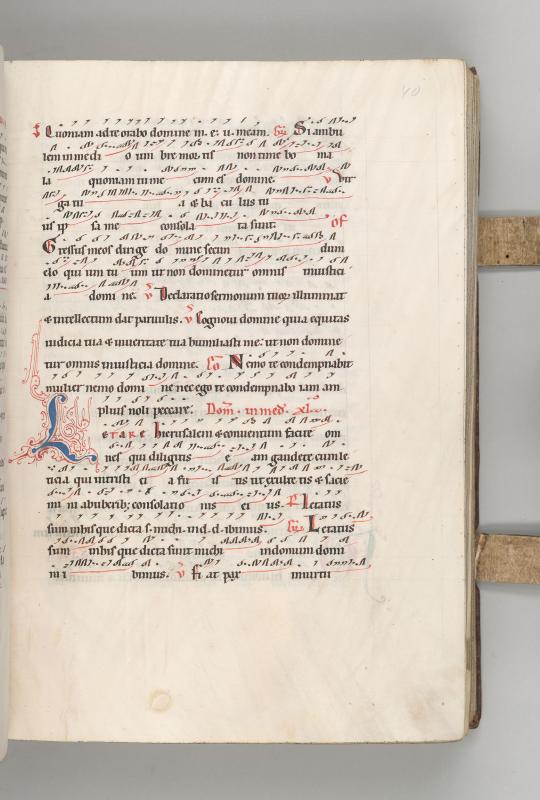 40
Quoniam ad te orabo domine m. e. u. meam. Si ambu
lem in medi o um bre mor tis non time bo ma
la quoniam tu me cum es domine. v Vir
ga tu a et ba cu lus tu
us ip sa me consola ta sunt. of
Gressus meos dirige do mine secun dum
elo qui um tu um ut non dominetur omnis iniustici
a domi ne. v Declaratio sermonum tuor illuminat
et intellectum dat paruulis. v Cognoui domine quia equitas
iudicia tua et in ueritate tua humiliasti me: ut non domine
tur omnis iniusticia domine. Co Nemo te condempnabit
mulier nemo domi ne nec ego te condempnabo iam am
plius noli peccare. Dom in med xl
LETARE hierusalem et conuentum facite om
nes qui diligitis e am gaudete cum le
ticia qui in tristi ci a fu is tis ut exulte tis et sacie
mi ni ab uberib; consolatio nis ue us. Letatus
sum in his que dicta s. michi. in d. d. ibimus. Letatus
sum in his que dicta sunt michi in domum domi
ni i bimus. v Fi at pax in uirtu